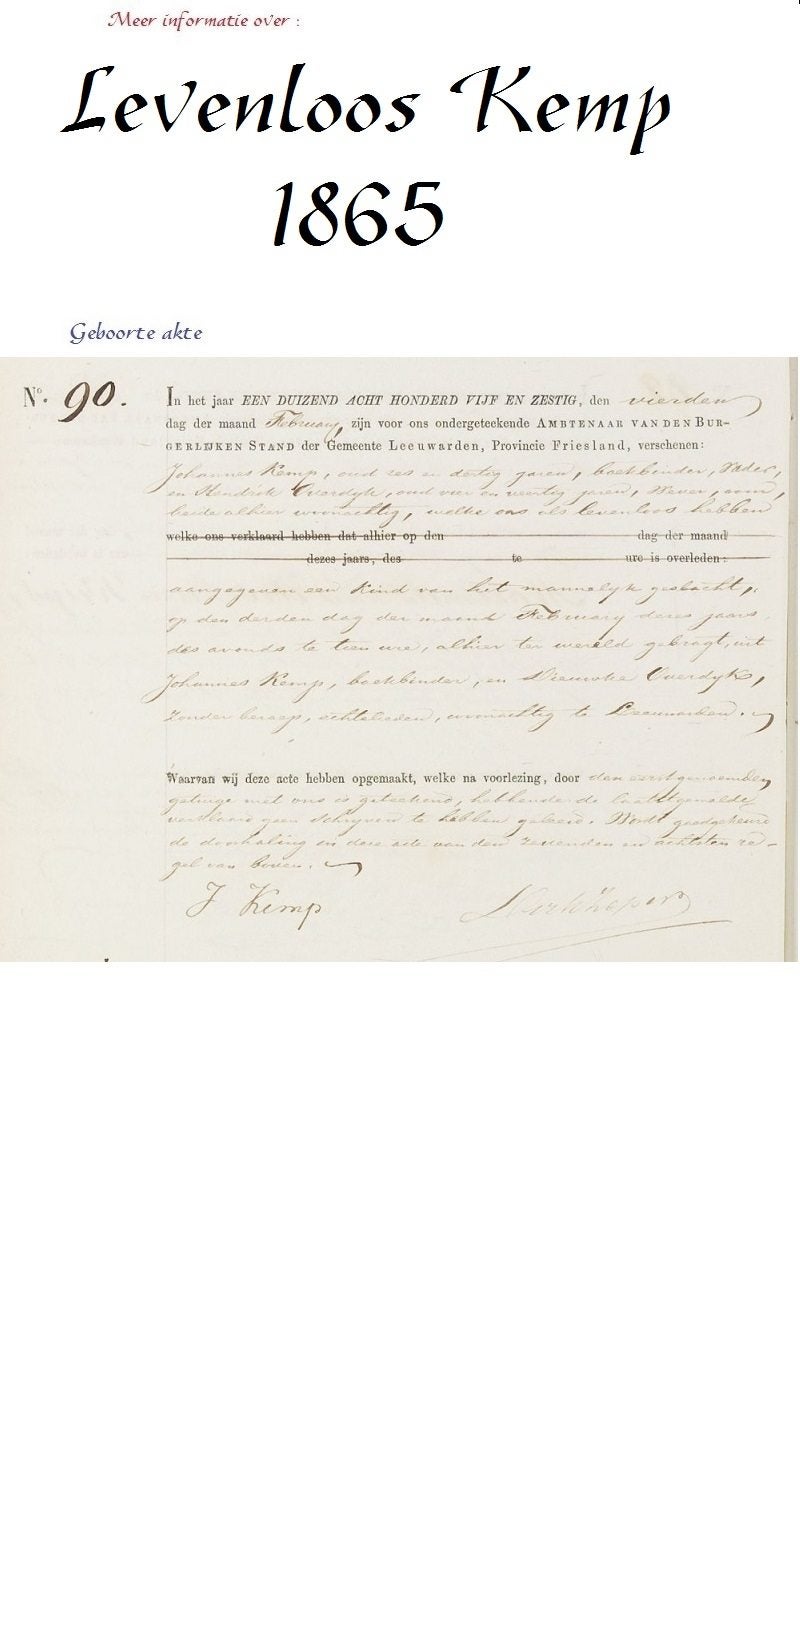 Meer informatie over :
Levenloos Kemp
1865
Geboorte akte
No. 90.
In het jaar EEN DUIZEND ACHT HONDERD VIJF EN ZESTIG, den vierden
dag der maand February, zijn voor ons ondergeteekende AMBTENAAR VAN DEN BUR-
GERLIJKEN STAND der Gemeente Leeuwarden, Provincie Friesland, verschenen:
Johannes Kemp, oud zes en dertig jaren, boekbinder, Vader,
en Hendrik Overdyk, oud vier en veertig jaren, Wever, oom,
beide alhier woonachtig, welke ons als levenloos hebben
welke ons verklaard hebben dat alhier op den dag der maand
dezes jaars, des te ure is overleden:
aangegeven een Kind van het mannelyk geslacht,
op den derden dag der maand February dezes jaars
des avonds te tien ure, alhier ter wereld gebragt, uit
Johannes Kemp, boekbinder, en Overdyk,
zonder beroep, echtelieden, woonachtig te Leeuwarden.
Waarvan wij deze acte hebben opgemaakt, welke na voorlezing, door den eerstgenoemden
getuige met ons is geteekend, hebbende de laatstgemelde
verklaard geen schryven te hebben geleerd. Wordt goedgekeurd
de doorhaling in deze acte van den zevenden en achtsten re-
gel van boven.
J Kemp